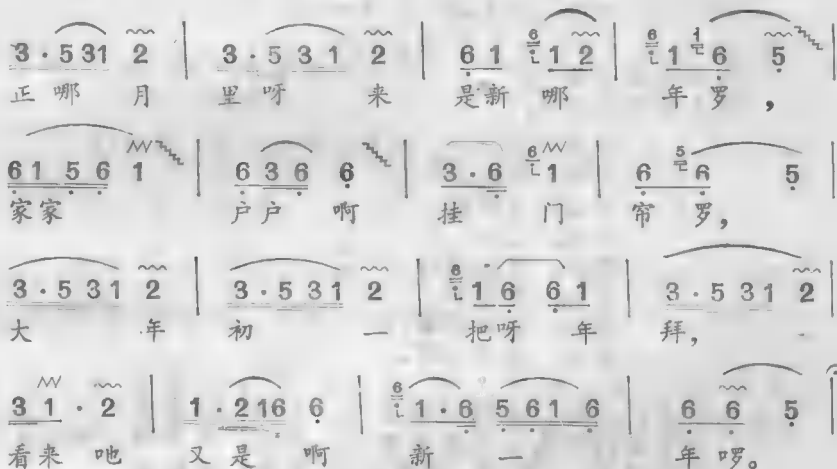 3·531 2 | 3·5 3 1 2 | 6 1 6 1 2 | 6 1 1 6 5
正哪月 里呀来 是新哪 年罗，
6 1 5 6 1 | 6 3 6 6 | 3·6 6 1 | 6 5 6 5
家家 户户啊 挂门 帘罗，
3·5 3 1 2 | 3·5 3 1 2 | 6 1 6 6 1 | 3·5 3 1 2
大年 初一 把呀年 拜，
3 1·2 | 1·216 6 | 6 1·6 5 6 1 6 | 6 6 5
看来吔 又是啊 新一 年啰。